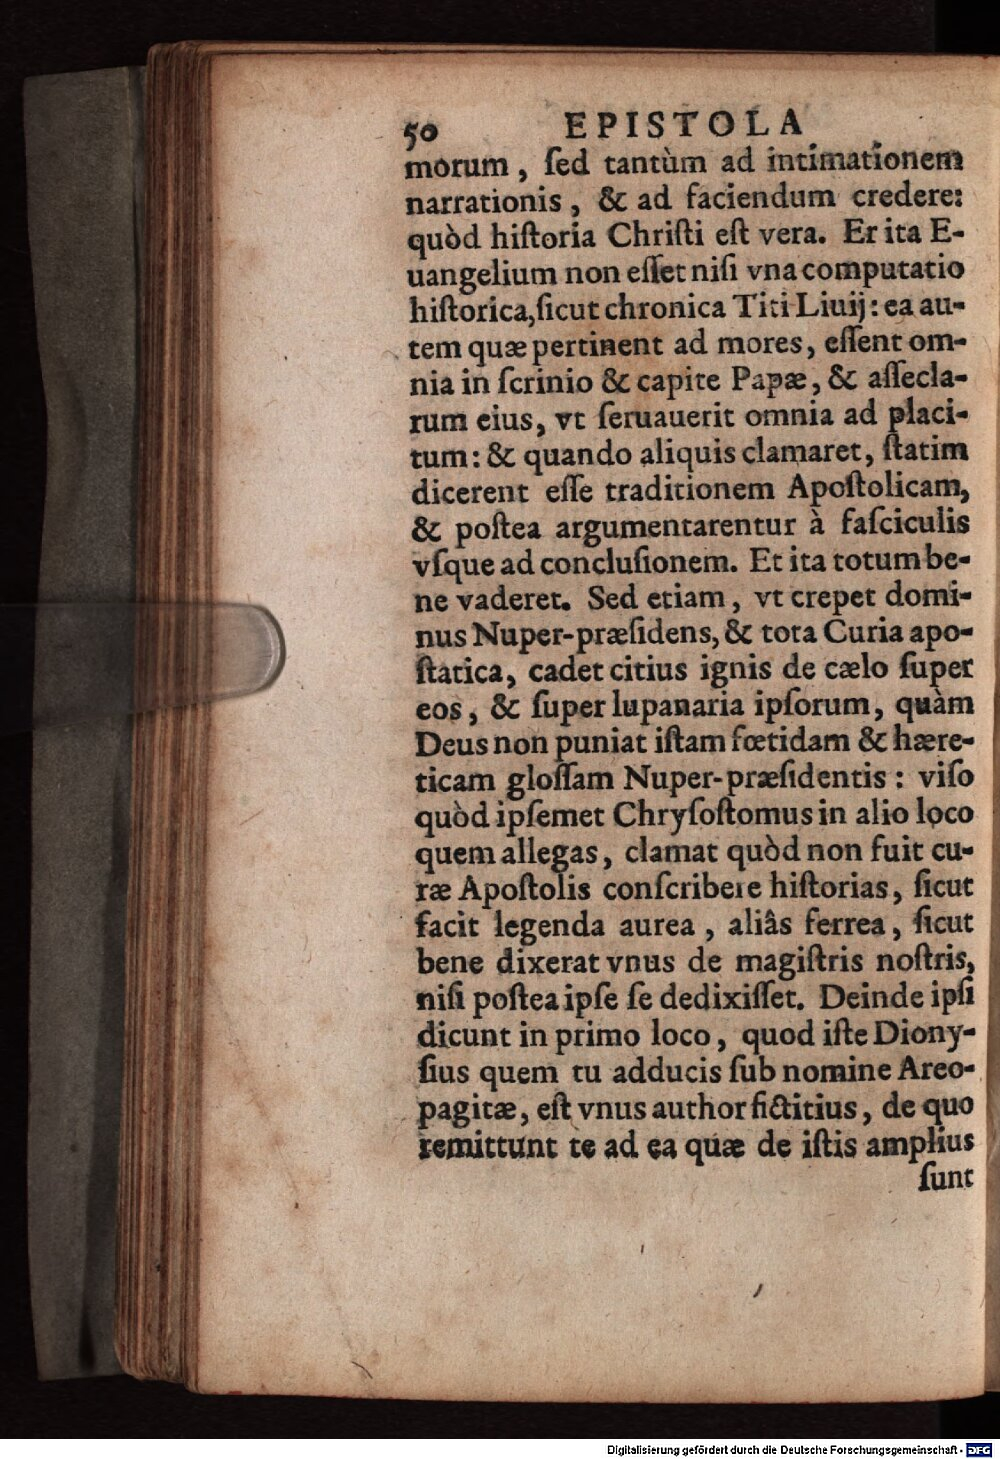 50 EPISTOLA
morum, ſed tantùm ad intimationem
narrationis, & ad faciendum credere:
quòd hiſtoria Chriſti eſt vera. Et ita E-
uangelium non eſſet niſi vna computatio
hiſtorica, ſicut chronica Titi Liuij: ea au-
tem quæ pertinent ad mores, eſſent om-
nia in ſcrinio & capite Papæ, & aſſecla-
rum eius, vt ſeruauerit omnia ad placi-
tum: & quando aliquis clamaret, ſtatim
dicerent eſſe traditionem Apoſtolicam,
& poſtea argumentarentur à faſciculis
vſque ad concluſionem. Et ita totum be-
ne vaderet. Sed etiam, vt crepet domi-
nus Nuper-præſidens, & tota Curia apo-
ſtatica, cadet citius ignis de cælo ſuper
eos, & ſuper lupanaria ipſorum, quàm
Deus non puniat iſtam fœtidam & hære-
ticam gloſſam Nuper-præſidentis: viſo
quòd ipſemet Chryſoſtomus in alio loco
quem allegas, clamat quòd non fuit cu-
ræ Apoſtolis conſcribere hiſtorias, ſicut
facit legenda aurea, aliâs ferrea, ſicut
bene dixerat vnus de magiſtris noſtris,
niſi poſtea ipſe ſe dedixiſſet. Deinde ipſi
dicunt in primo loco, quod iſte Diony-
ſius quem tu adducis ſub nomine Areo-
pagitæ, eſt vnus author fictitius, de quo
remittunt te ad ea quæ de iſtis amplius
ſunt
Digitalisierung gefördert durch die Deutsche Forschungsgemeinschaft - DFG